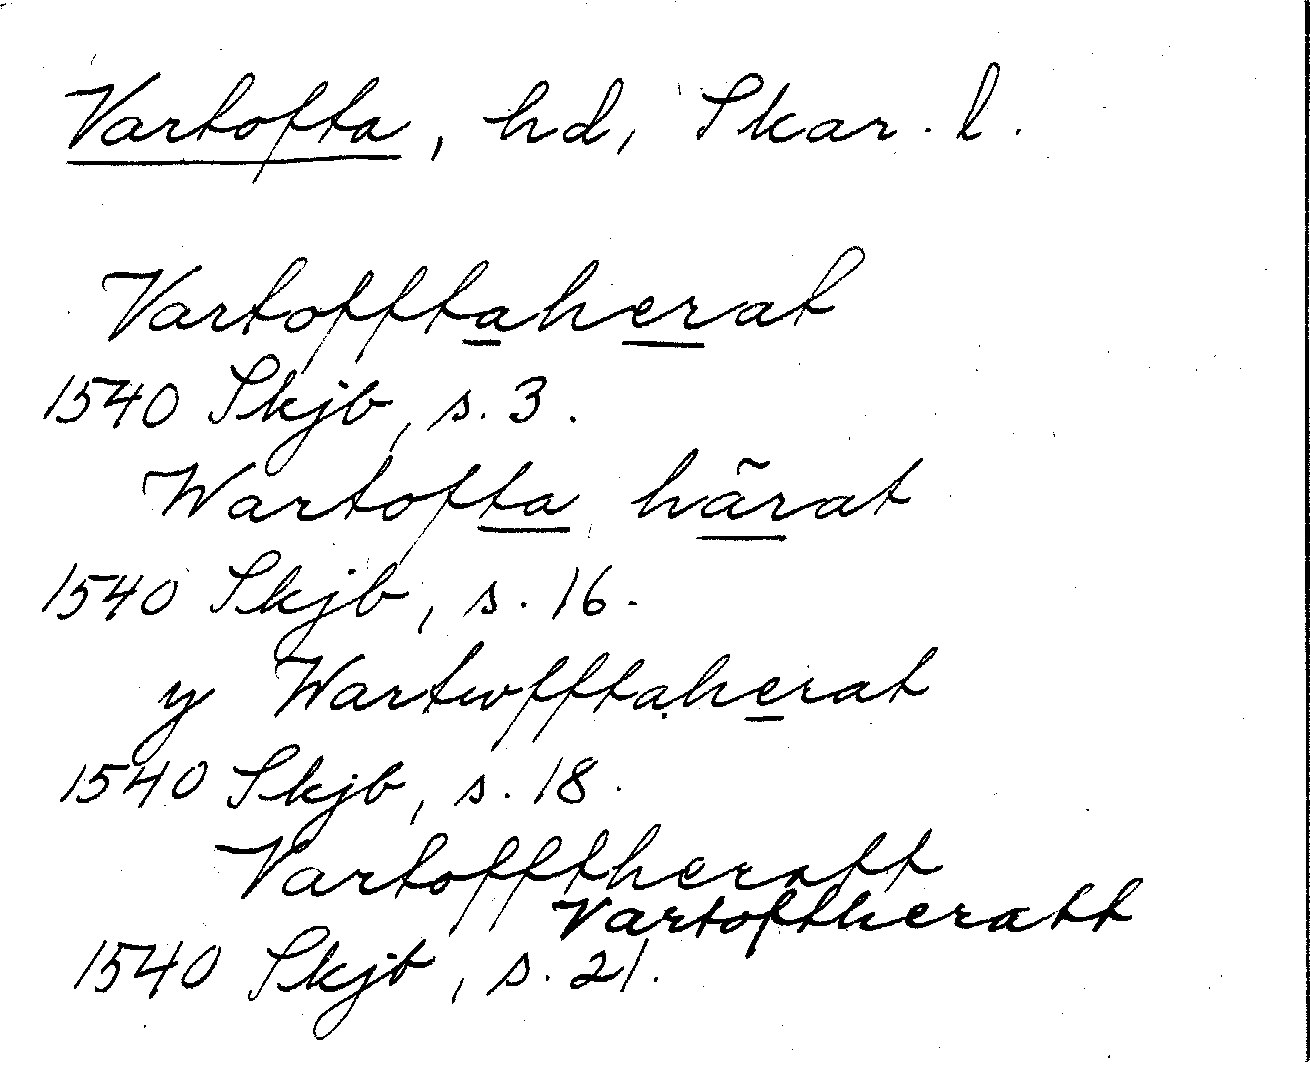 Vartofta, hd, Skar. l.
Vartofftaherat
1540 Skjb, s. 3.
Wartofta härat
1540 Skjb, s. 16.
y Wartwfftaherat
1540 Skjb, s. 18.
Vartofftheratt
Vartoftheratt
1540 Skjb, s. 21.